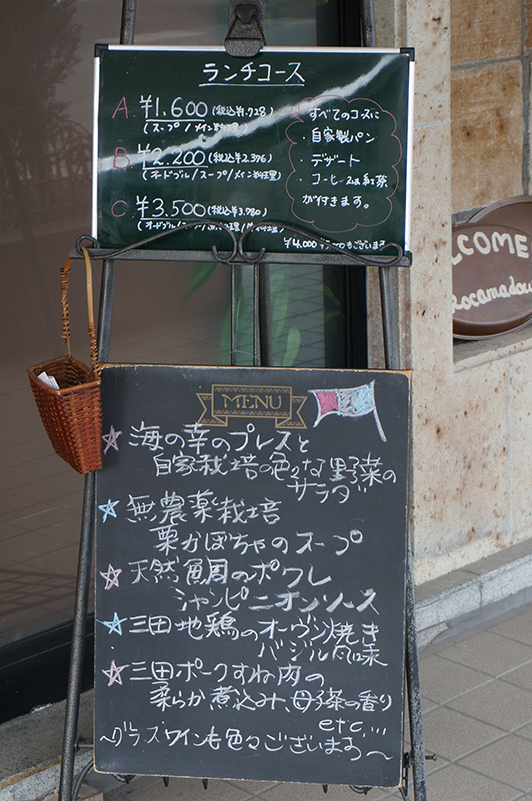 ランチコース
A. ¥1.600 (税込¥1.728)
(スープ/メイン料理)
B. ¥2.200 (税込¥2.376)
(オードブル/スープ/メイン料理)
C. ¥3.500 (税込¥3.780)
(オードブル/
¥4.000
すべてのコースに
・自家製パン
・デザート
・コーヒーor紅茶
が付きます。
LCOME
Rocamadou
MENU
☆海の幸のプレスと
自家栽培の色々な野菜の
サラダ
☆無農薬栽培
栗かぼちゃのスープ
☆天然鯛のポワレ
シャンピニオンソース
☆三田地鶏のオーヴン焼き
バジル風味
☆三田ポークすね肉の
柔らか煮込み、母子茶の香り
etc...
〜グラスワインも色々ございます〜